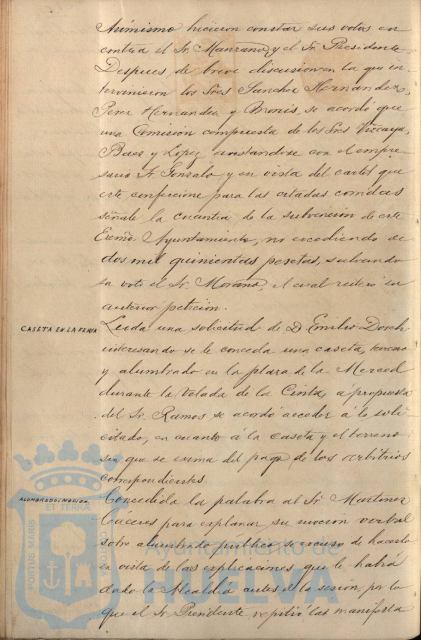 Asimismo hicieron constar sus votos en
contra el Sr. Manzano, y el Sr. Presidente.
Despues, de breve discusion en la que in-
tervinieron los Sres Sanchez Hernandez,
Perez Hernandez y Bronis, se acordó que
una Comision compuesta de los Sres Vizcaya,
Baez y Lopez avistandose con el empre-
sario Sr. Gonzalo y en vista del cartel que
este confeccione para las citadas corridas
señale la cuantia de la subvencion de este
Excmo Ayuntamiento, no excediendo de
dos mil quinientas pesetas, salvando
su voto el Sr. Morano, el cual reitera su
anterior peticion.
CASETA EN LA FERIA
Leida una solicitud de D. Emilio
interesando se le conceda una caseta, terreno
y alumbrado en la plaza de la Merced
durante la Velada de la Cinta, a propuesta
del Sr. Ramos se acordó acceder á lo soli-
citado, en cuanto á la caseta y el terreno
sin que se exima del pago de los arbitrios
correspondientes.
ALUMBRADO
Concedida la palabra al Sr. Martinez
Caceres para explanar su mocion verbal
sobre alumbrado publico se escusó de hacerlo
en vista de las explicaciones que le habrá
dado la Alcaldia antes de la sesion, por lo
que el Sr. Presidente repitió las manifesta
PORTUS MARIS ET TERRAE
Ayuntamiento de
HUELVA